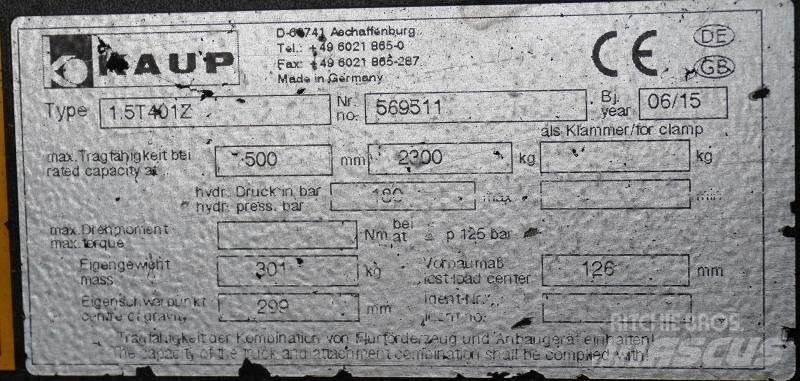 KAUP
D-63741 Aschaffenburg
Tel.: +49 6021 865-0
Fax: +49 6021 865-287
Made in Germany
CE
DE
GB
Type 1.5T401Z
Nr. no. 569511
Bj. year 06/15
als Klammer/for clamp
max. Tragfähigkeit bei
rated capacity at 500 mm 2300 kg kg
hydr. Druck in bar
hydr. press. bar 180 max min
max. Drehmoment
max. torque Nm bei at p 125 bar
Eigengewicht
mass 301 kg
Vorbaumaß
lost load center 126 mm
Eigenschwerpunkt
centre of gravity 299 mm
Ident-Nr.
Tragfähigkeit der Kombination von Flurförderzeug und Anbaugerät einhalten!
The capacity of the truck and attachment combination shall be complied with!